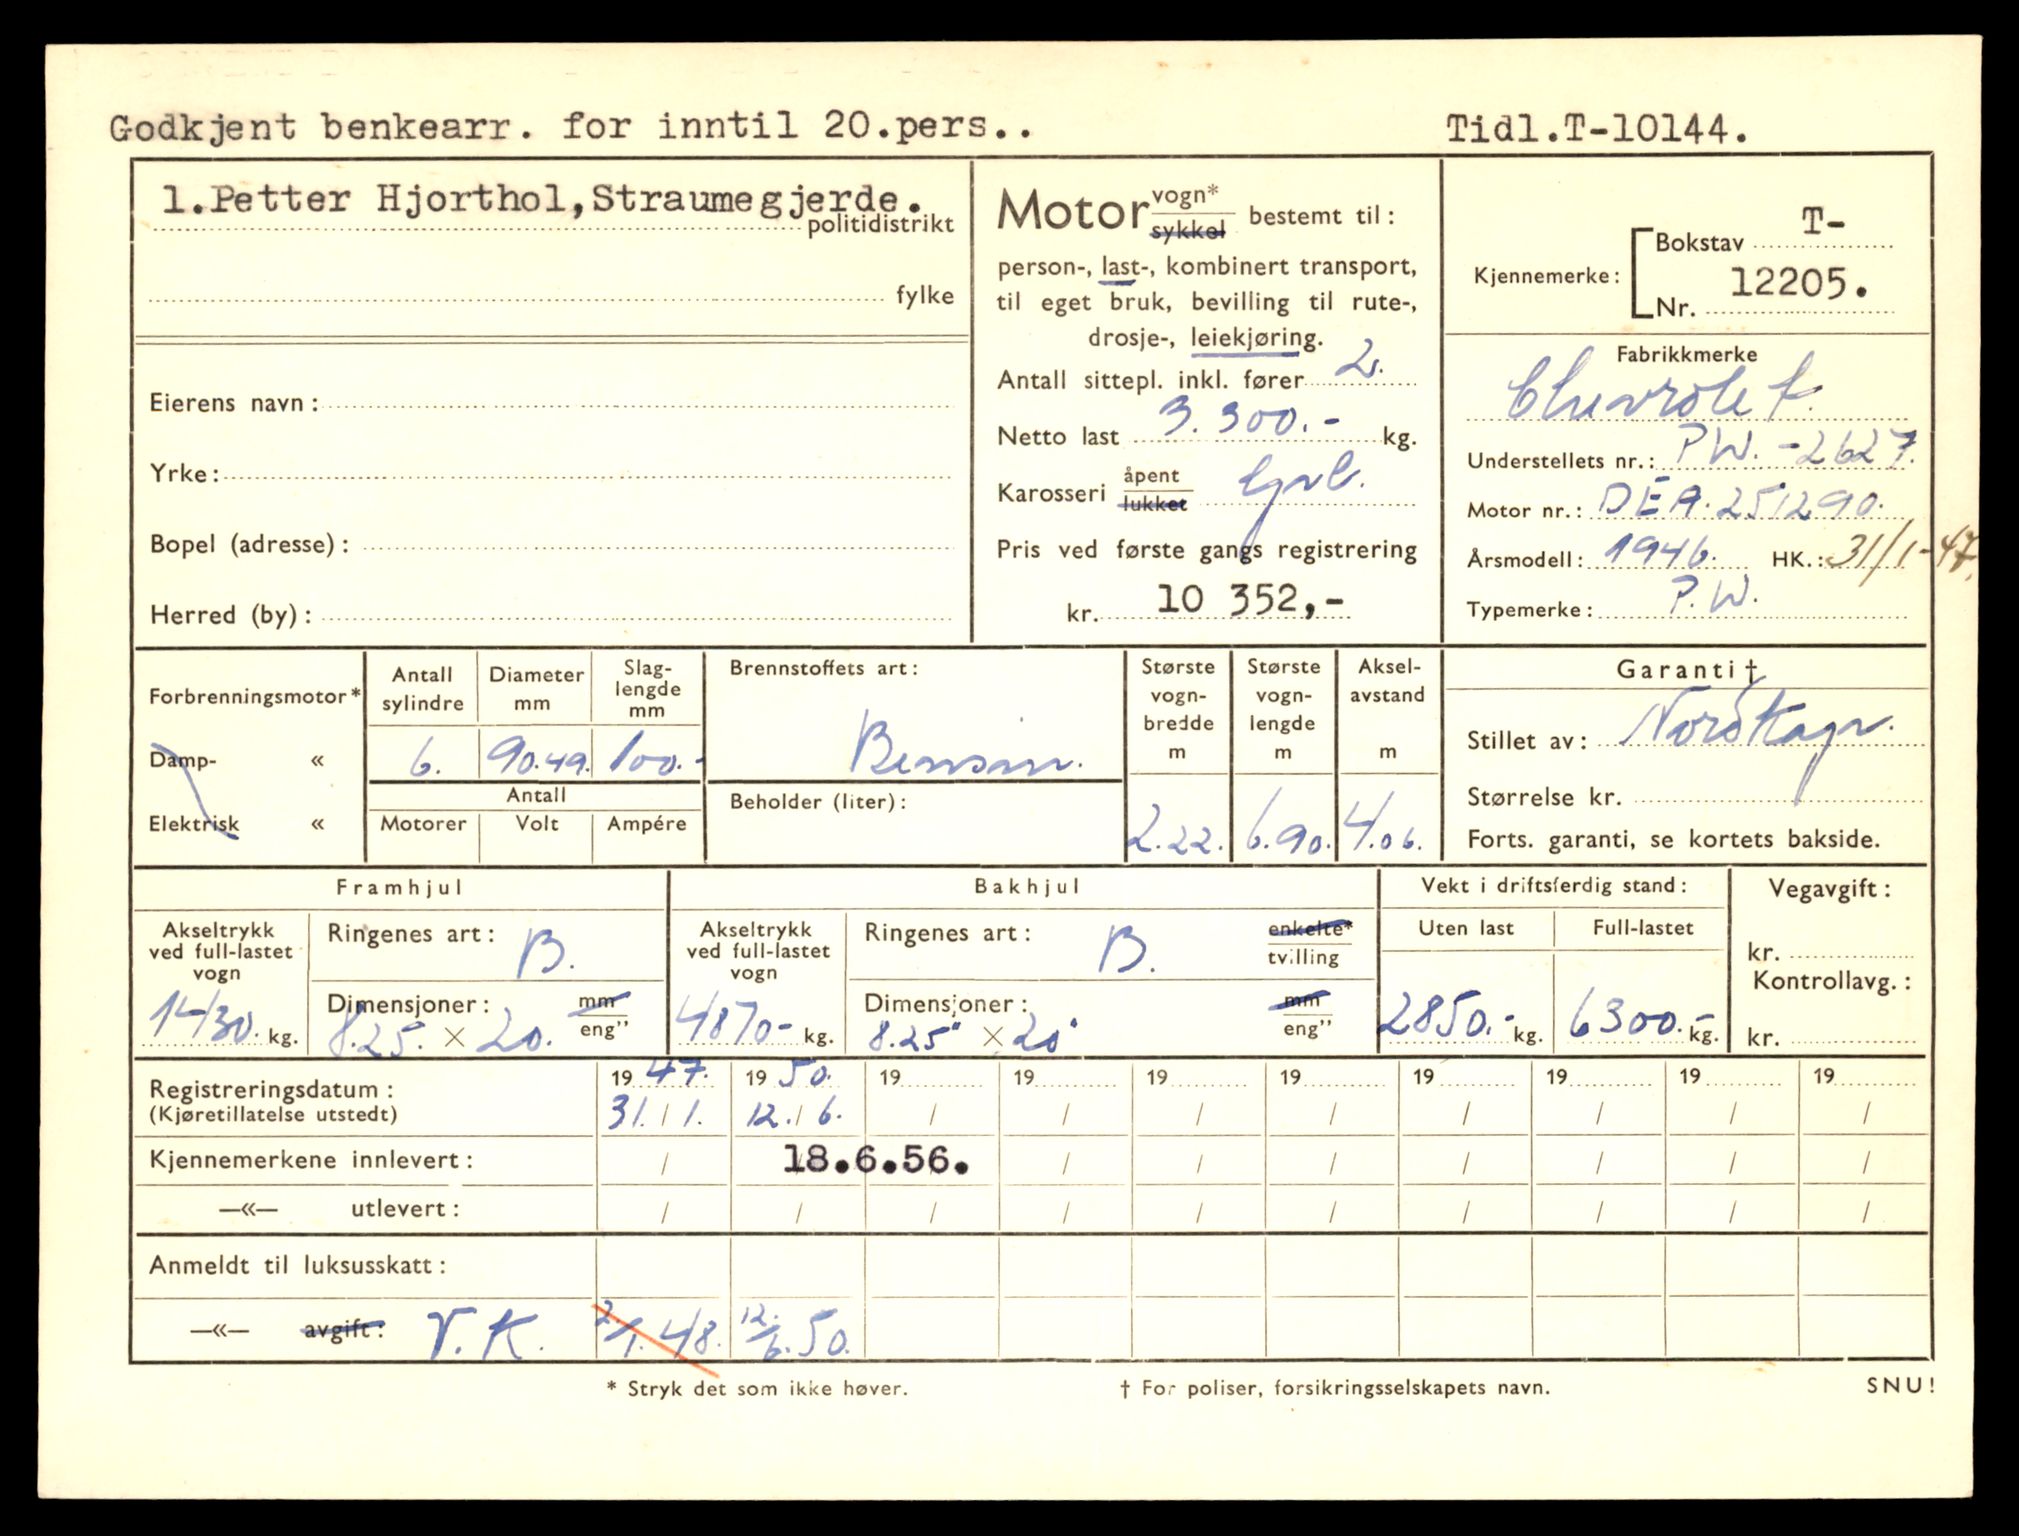 Godkjent benkearr. for inntil 20.pers..
Tidl.T-10144.
1.Petter Hjorthol,Straumegjerde.
politidistrikt
fylke
Eierens navn:
Yrke:
Bopel (adresse):
Herred (by):
Motor vogn*
sykkel
bestemt til:
person-, last-, kombinert transport,
til eget bruk, bevilling til rute-,
drosje-, leiekjøring.
Antall sittepl. inkl. fører 2.
Netto last 3.300.- kg.
Karosseri åpent
lukket
Pris ved første gangs registrering
kr. 10 352,-
Kjennemerke:
Bokstav T-
Nr. 12205.
Fabrikkmerke
Chevrolet.
Understellets nr.: P.W.-2627.
Motor nr.: DEA.251290.
Årsmodell: 1946. HK.: 31/1-47.
Typemerke: P.W.
Forbrenningsmotor*
Damp- «
Elektrisk «
Antall sylindre
6.
Diameter mm
90.49.
Slaglengde mm
100.-
Antall
Motorer Volt Ampére
Brennstoffets art:
Bensin.
Beholder (liter):
Største vogn-bredde m
2.22.
Største vogn-lengde m
6.90.
Aksel-avstand m
4.06.
Garanti †
Stillet av:
Størrelse kr.
Forts. garanti, se kortets bakside.
Framhjul
Akseltrykk ved full-lastet vogn
1430. kg.
Ringenes art: B.
Dimensjoner: mm
8.25. × 20. eng”
Bakhjul
Akseltrykk ved full-lastet vogn
4870- kg.
Ringenes art: B. enkelte*
tvilling
Dimensjoner: mm
8.25" × 20" eng”
Vekt i driftsferdig stand:
Uten last Full-lastet
2850.- kg. 6300.- kg.
Vegavgift:
kr.
Kontrollavg.:
kr.
Registreringsdatum: 19 47. 19 50. 19 19 19 19 19 19 19 19
(Kjøretillatelse utstedt) 31./1. 12./6. / / / / / / / /
Kjennemerkene innlevert: / 18.6.56. / / / / / / /
—«— utlevert: / / / / / / / / / /
Anmeldt til luksusskatt:
—«— avgift: V.K. 2/1.48. 12./6.50.
* Stryk det som ikke høver.
† For poliser, forsikringsselskapets navn.
SNU!